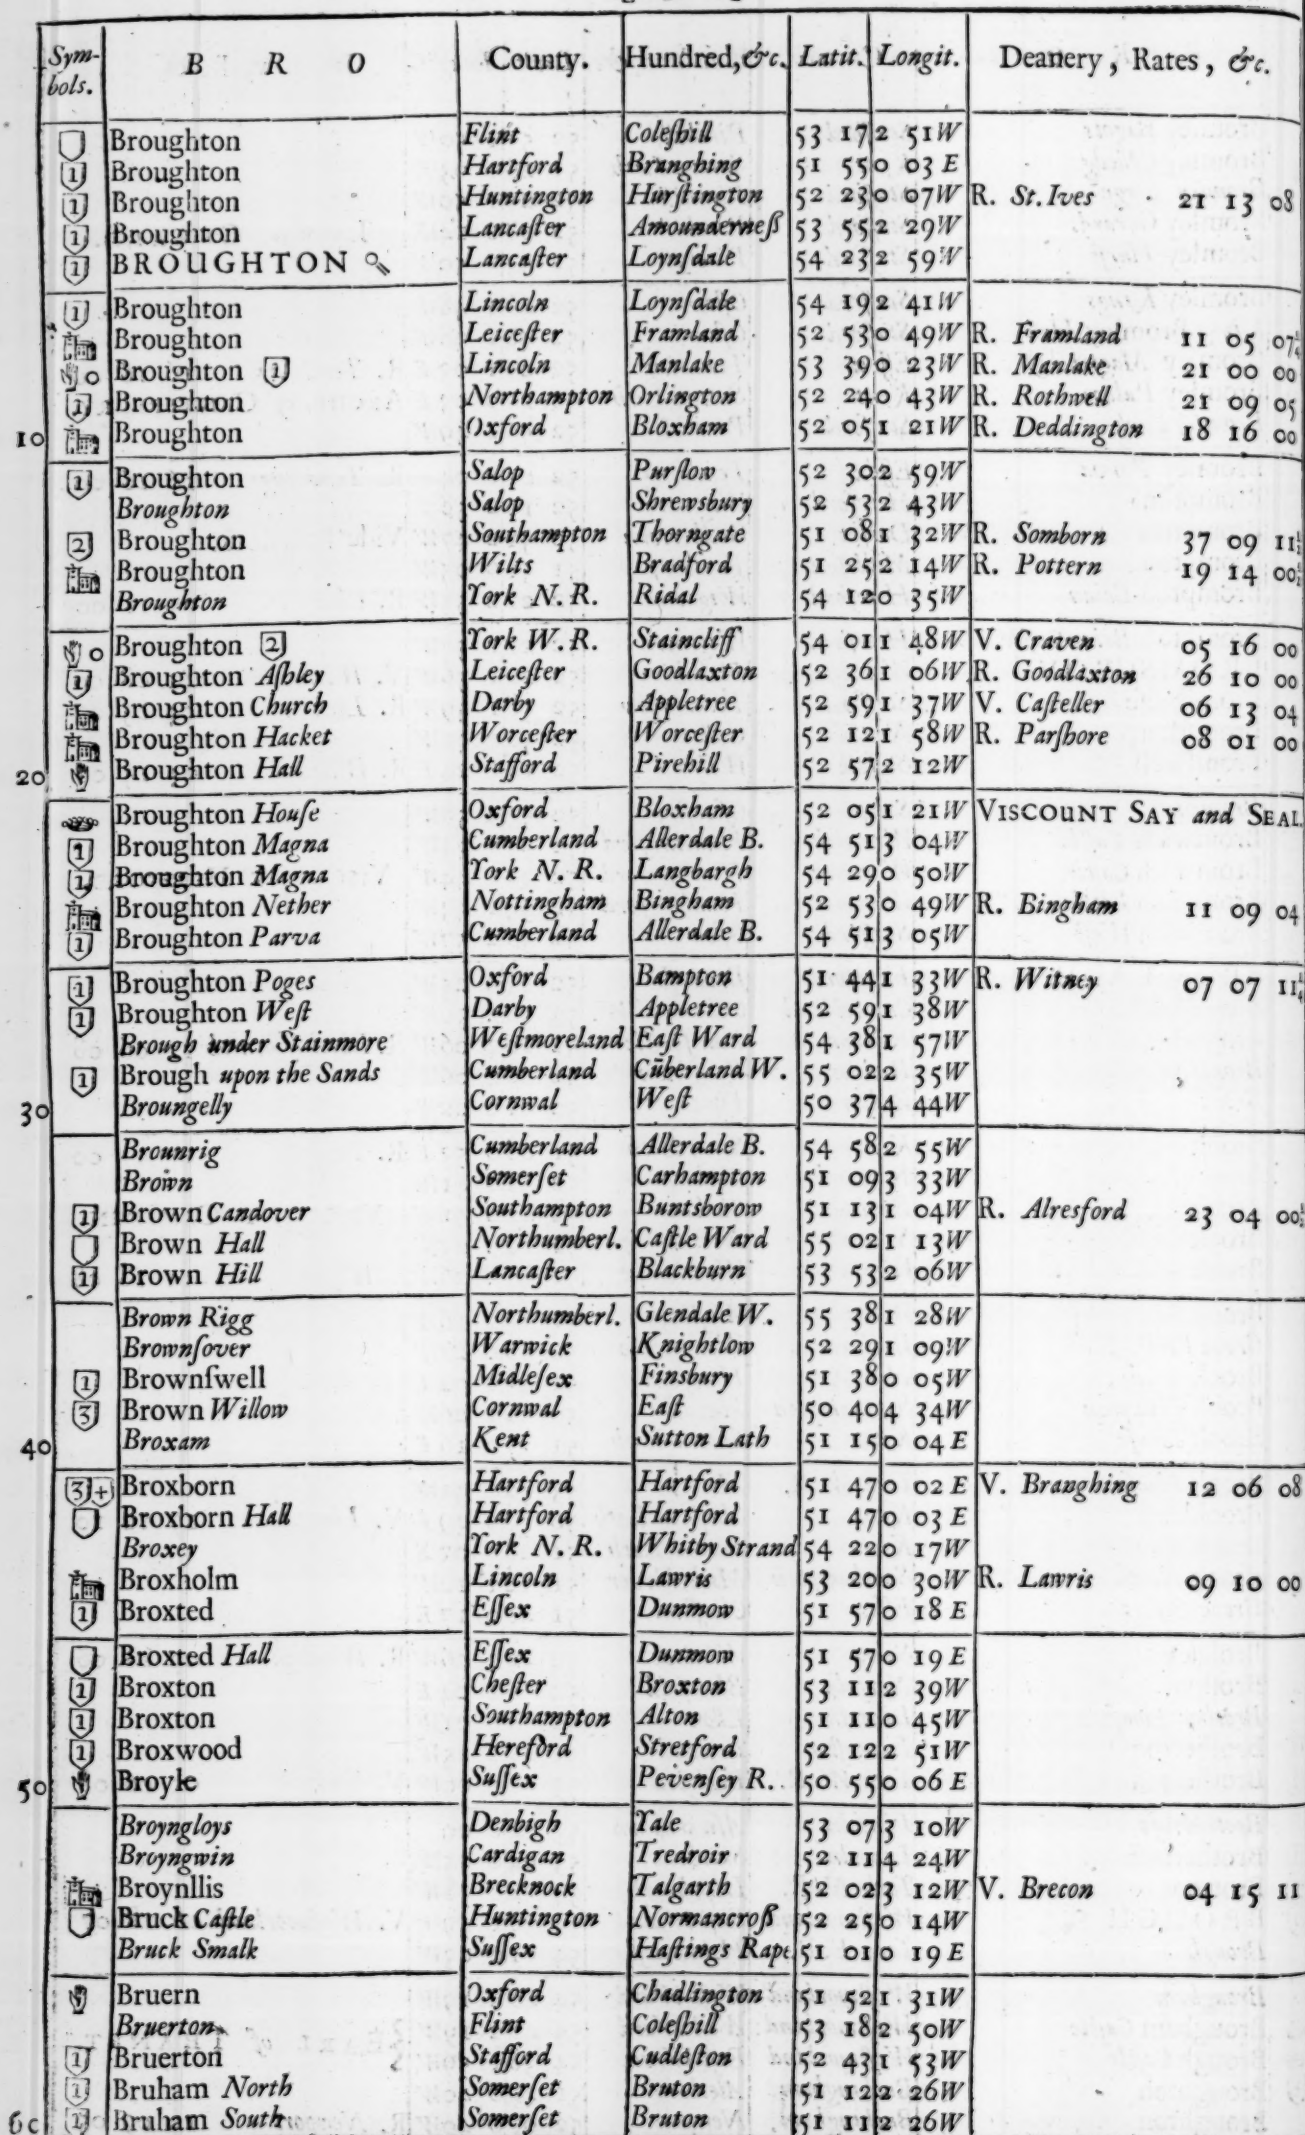 Symbols. B R O County. Hundred, &c. Latit. Longit. Deanery, Rates, &c.
Broughton Flint Coleſhill 53 17 2 51 W
1 Broughton Hartford Branghing 51 55 0 03 E
1 Broughton Huntington Hurſtington 52 23 0 07 W R. St. Ives 21 13 08
1 Broughton Lancaſter Amounderneß 53 55 2 29 W
1 BROUGHTON Lancaſter Loynſdale 54 23 2 59 W
1 Broughton Lincoln Loynſdale 54 19 2 41 W
Broughton Leiceſter Framland 52 53 0 49 W R. Framland 11 05 07¼
Broughton 1 Lincoln Manlake 53 39 0 23 W R. Manlake 21 00 00
1 Broughton Northampton Orlington 52 24 0 43 W R. Rothwell 21 09 05
10 Broughton Oxford Bloxham 52 05 1 21 W R. Deddington 18 16 00
1 Broughton Salop Purſlow 52 30 2 59 W
Broughton Salop Shrewsbury 52 53 2 43 W
2 Broughton Southampton Thorngate 51 08 1 32 W R. Somborn 37 09 11½
Broughton Wilts Bradford 51 25 2 14 W R. Pottern 19 14 00½
Broughton York N. R. Ridal 54 12 0 35 W
Broughton 2 York W. R. Staincliff 54 01 1 48 W V. Craven 05 16 00
1 Broughton Aſhley Leiceſter Goodlaxton 52 36 1 06 W R. Goodlaxton 26 10 00
Broughton Church Darby Appletree 52 59 1 37 W V. Caſteller 06 13 04
Broughton Hacket Worceſter Worceſter 52 12 1 58 W R. Parſhore 08 01 00
20 Broughton Hall Stafford Pirehill 52 57 2 12 W
Broughton Houſe Oxford Bloxham 52 05 1 21 W VISCOUNT SAY and SEAL.
1 Broughton Magna Cumberland Allerdale B. 54 51 3 04 W
1 Broughton Magna York N. R. Langbargh 54 29 0 50 W
Broughton Nether Nottingham Bingham 52 53 0 49 W R. Bingham 11 09 04
1 Broughton Parva Cumberland Allerdale B. 54 51 3 05 W
1 Broughton Poges Oxford Bampton 51 44 1 33 W R. Witney 07 07 11¼
1 Broughton Weſt Darby Appletree 52 59 1 38 W
Brough under Stainmore Weſtmoreland Eaſt Ward 54 38 1 57 W
1 Brough upon the Sands Cumberland Cūberland W. 55 02 2 35 W
30 Broungelly Cornwal Weſt 50 37 4 44 W
Brounrig Cumberland Allerdale B. 54 58 2 55 W
Brown Somerſet Carhampton 51 09 3 33 W
1 Brown Candover Southampton Buntsborow 51 13 1 04 W R. Alresford 23 04 00½
Brown Hall Northumberl. Caſtle Ward 55 02 1 13 W
1 Brown Hill Lancaſter Blackburn 53 53 2 06 W
Brown Rigg Northumberl. Glendale W. 55 38 1 28 W
Brownſover Warwick Knightlow 52 29 1 09 W
1 Brownſwell Midleſex Finsbury 51 38 0 05 W
3 Brown Willow Cornwal Eaſt 50 40 4 34 W
40 Broxam Kent Sutton Lath 51 15 0 04 E
3 + Broxborn Hartford Hartford 51 47 0 02 E V. Branghing 12 06 08
Broxborn Hall Hartford Hartford 51 47 0 03 E
Broxey York N. R. Whitby Strand 54 22 0 17 W
Broxholm Lincoln Lawris 53 20 0 30 W R. Lawris 09 10 00
1 Broxted Eſſex Dunmow 51 57 0 18 E
Broxted Hall Eſſex Dunmow 51 57 0 19 E
1 Broxton Cheſter Broxton 53 11 2 39 W
1 Broxton Southampton Alton 51 11 0 45 W
1 Broxwood Hereford Stretford 52 12 2 51 W
50 Broyle Suſſex Pevenſey R. 50 55 0 06 E
Broyngloys Denbigh Yale 53 07 3 10 W
Broyngwin Cardigan Tredroir 52 11 4 24 W
Broynllis Brecknock Talgarth 52 02 3 12 W V. Brecon 04 15 11
Bruck Caſtle Huntington Normancroß 52 25 0 14 W
Bruck Smalk Suſſex Haſtings Rape 51 01 0 19 E
Bruern Oxford Chadlington 51 52 1 31 W
Bruerton Flint Coleſhill 53 18 2 50 W
1 Bruerton Stafford Cudleſton 52 43 1 53 W
1 Bruham North Somerſet Bruton 51 12 2 26 W
60 1 Bruham South Somerſet Bruton 51 11 2 26 W